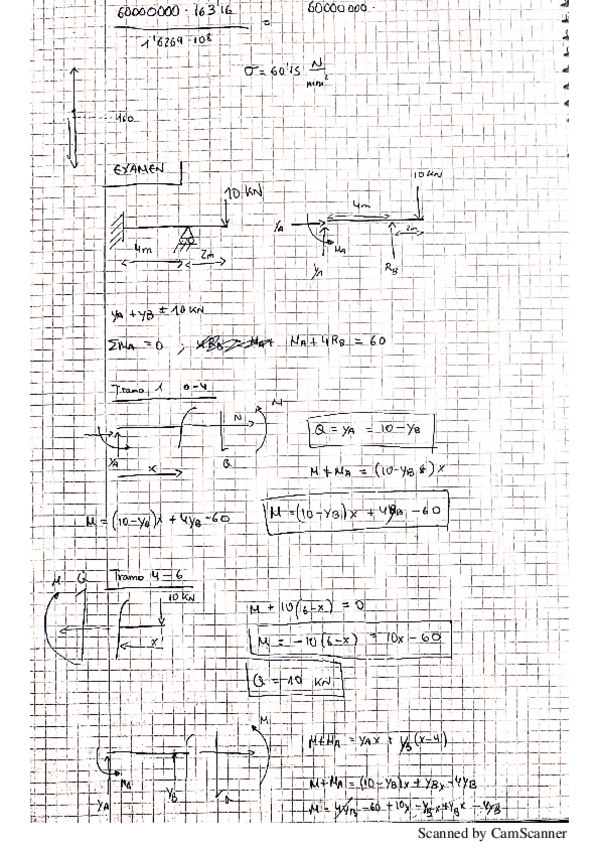 60000000 · 163'16
60000000
=
1'6269 · 10⁸
σ = 60'15 N/mm²
160
EXAMEN
10 KN
10 KN
4m
YA
MA
4m
2m
2m
YA
RB
YA + YB = 10 KN
ΣMA = 0 ; MA + 4RB = 60
Tramo 1 0-4
M
N
Q = YA = 10 - YB
YA
x
Q
M + MA = (10 - YB) x
M = (10 - YB)x + 4YB - 60
M = (10 - YB)x + 4YB - 60
M Q Tramo 4-6
10 KN
M + 10(6-x) = 0
x
M = -10(6-x) = 10x - 60
Q = -10 KN
M
M + MA = YAx + YB(x-4)
MA
M + MA = (10 - YB)x + YBx - 4YB
YA
YB
Q
M = 4YB - 60 + 10x - YBx + YBx - 4YB
Scanned by CamScanner